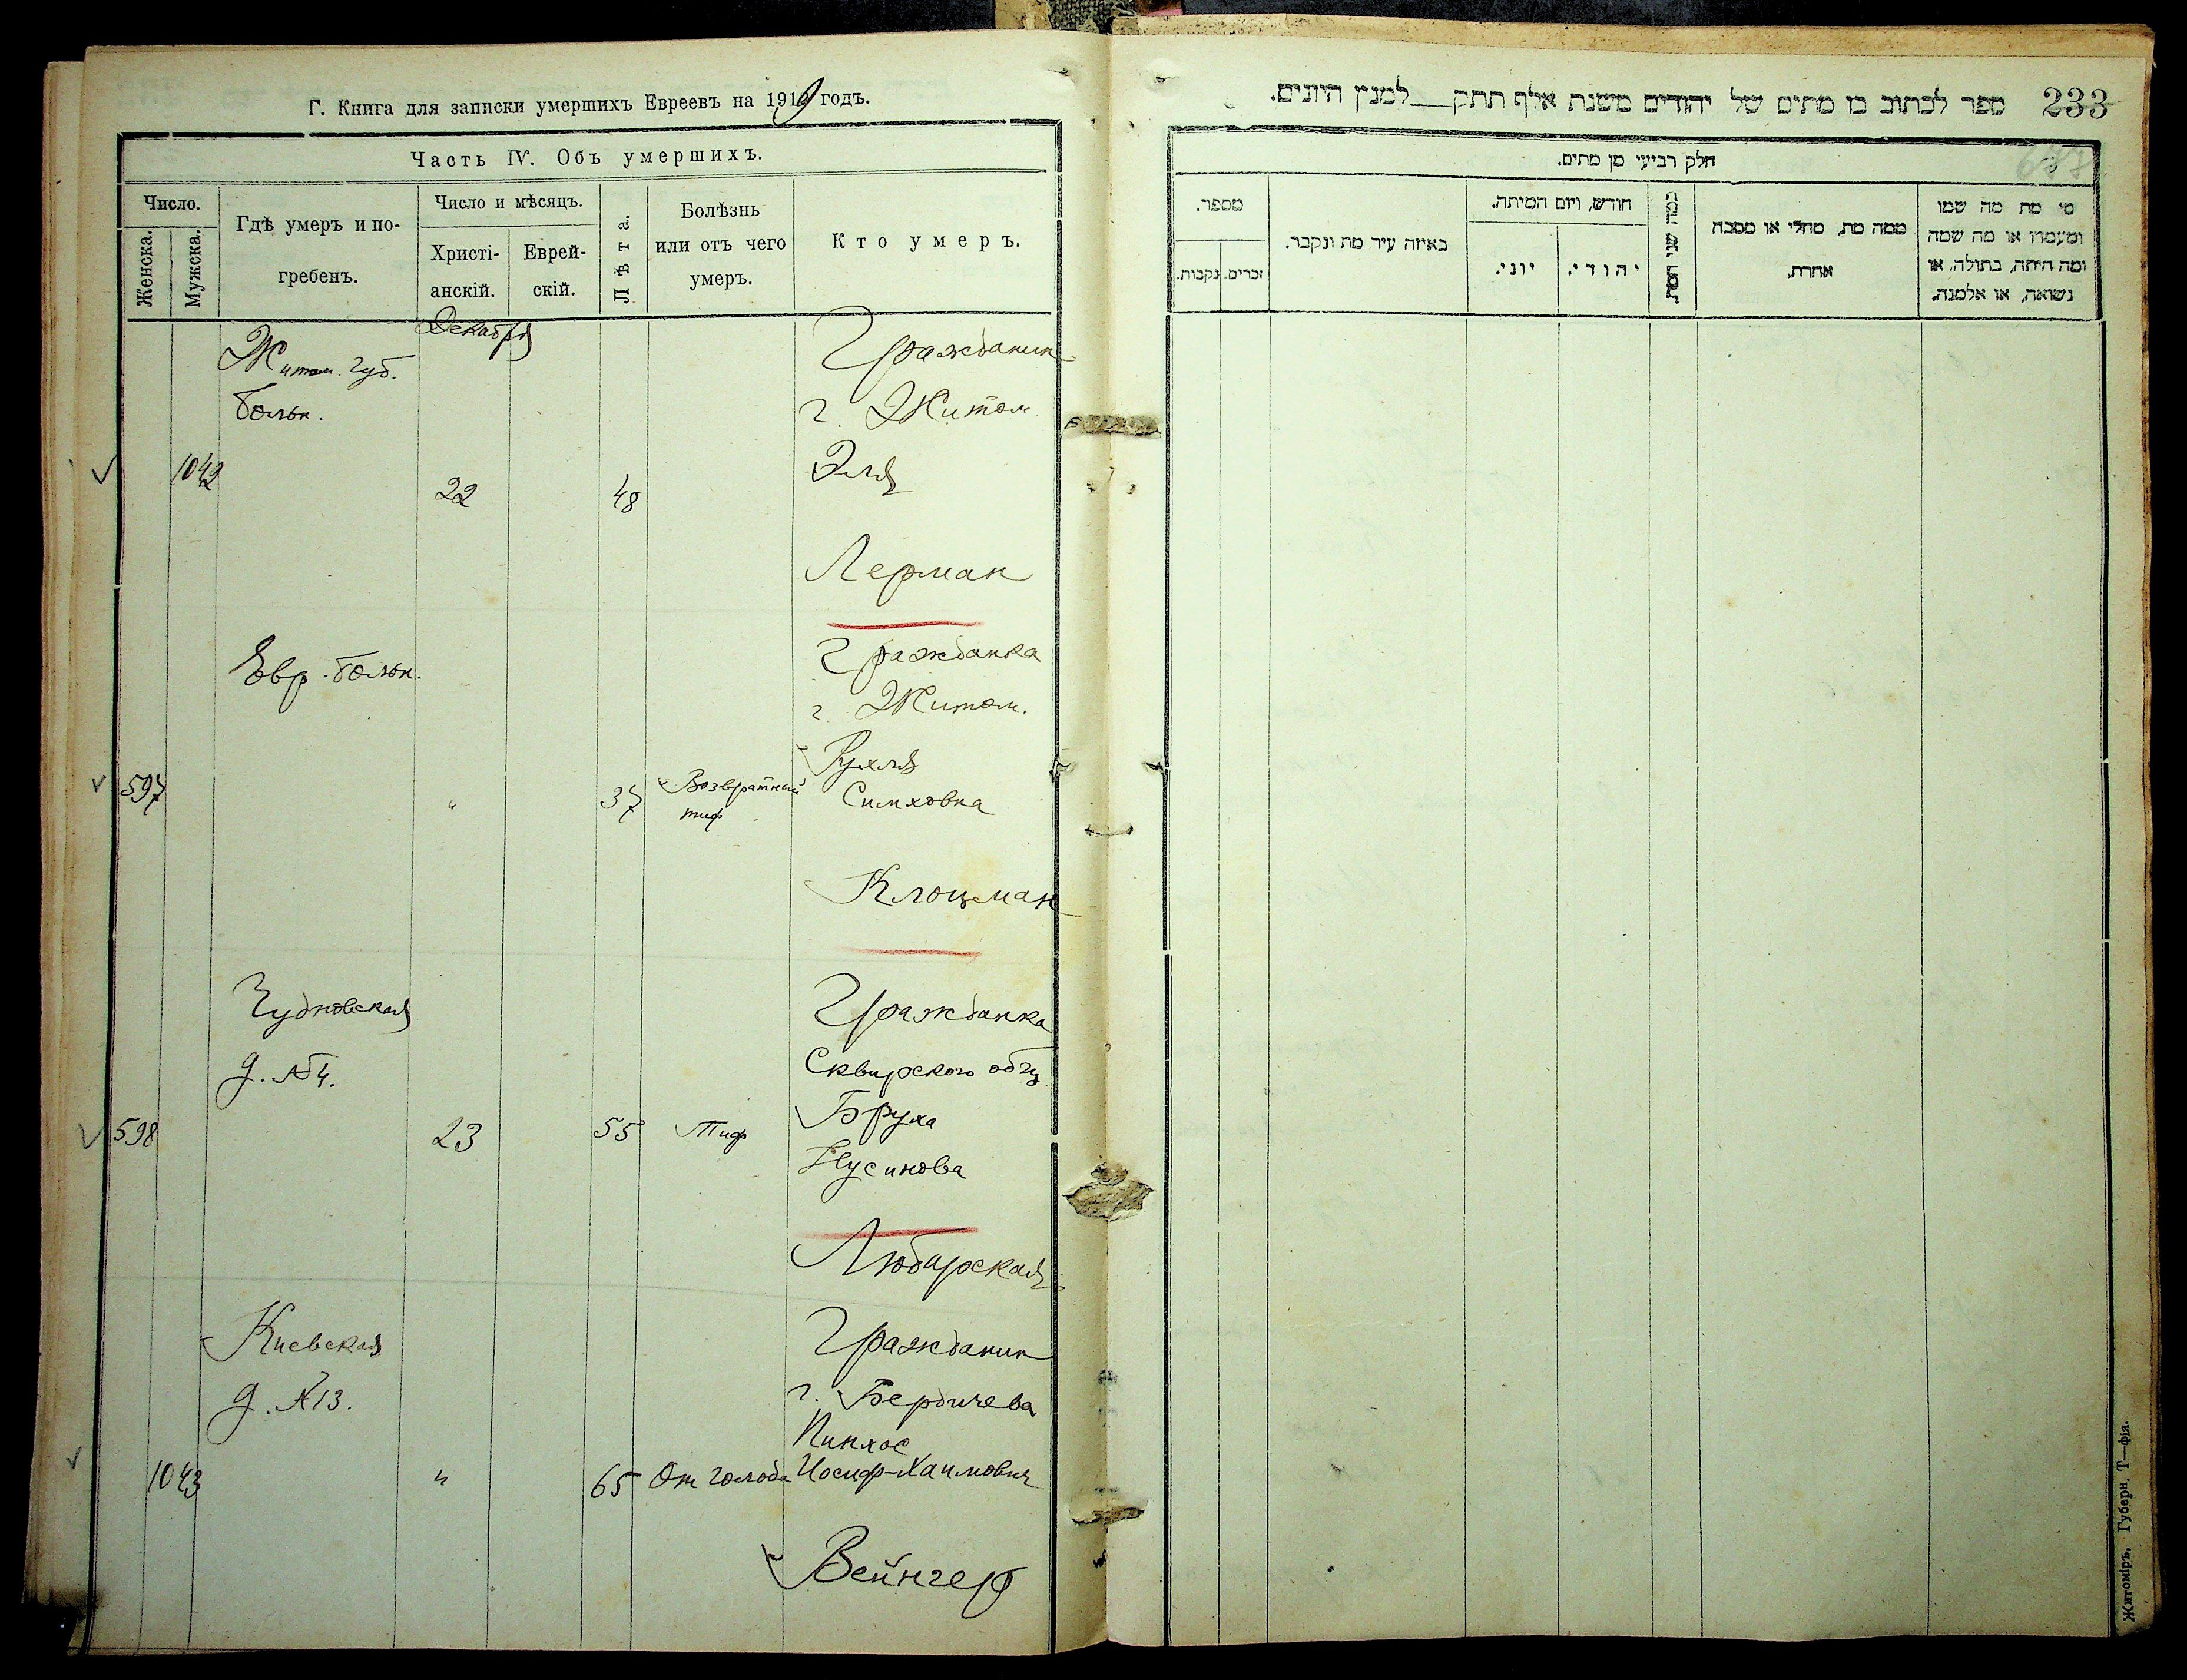 Г. Книга для записки умершихъ Евреевъ на 1919 годъ.
Часть IV. Объ умершихъ.
Число.
Женска.
Мужска.
Гдѣ умеръ и по-
гребенъ.
Число и мѣсяцъ.
Христі-
анскій.
Еврей-
скій.
Лѣта.
Болѣзнь
или отъ чего
умеръ.
Кто умеръ.
Декабря
Житом. губ.
больн.
1042
22
48
Гражданин
г. Житом.
Эля
Лерман
Евр. больн.
597
"
37
Возвратный
тиф
Гражданка
г. Житом.
Рухля
Симховна
Клоцман
Чудновская
д. №4.
598
23
55
Тиф
Гражданка
Сквирского общ.
Бруха
Нусинова
Любарская
Киевская
д. №13.
1043
"
65
От голода
Гражданин
г. Бердичева
Пинхос
Иосиф-Хаимович
Вейнгер
ספר לכתוב בו מתים של יהודים משנת אלף תתק___למנין היונים.
233
חלק רביעי מן מתים.
מספר.
זכרים.
נקבות.
באיזה עיר מת ונקבר.
חודש, ויום המיתה.
יוני.
יהודי.
כמה שני המת
ממה מת, מחלי או מסבה
אחרת.
מי מת מה שמו
ומעמדו או מה שמה
ומה היתה, בתולה, או
נשואה, או אלמנה.
Житоміръ, Губерн. Т—фія.